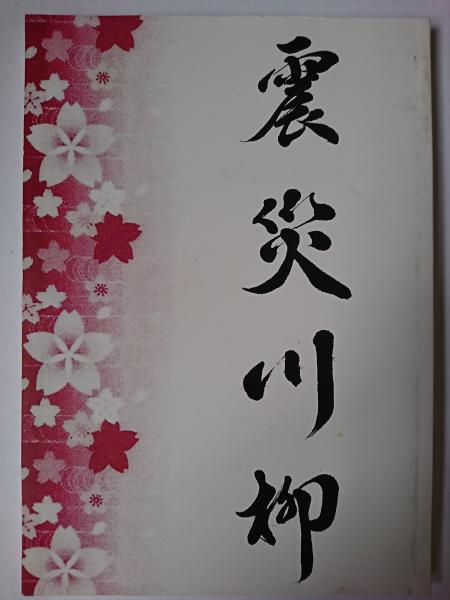 震災川柳